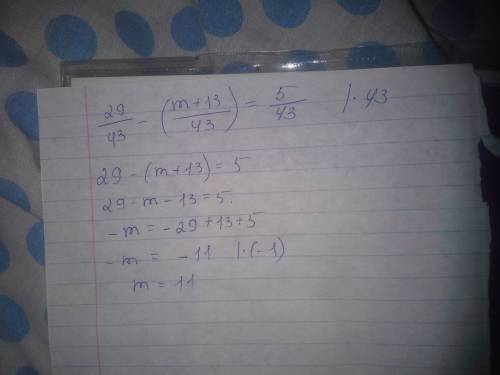 29/43 - (m+13/43) = 5/43 |·43
29-(m+13)=5
29-m-13=5.
-m=-29+13+5
-m = -11 |·(-1)
m=11